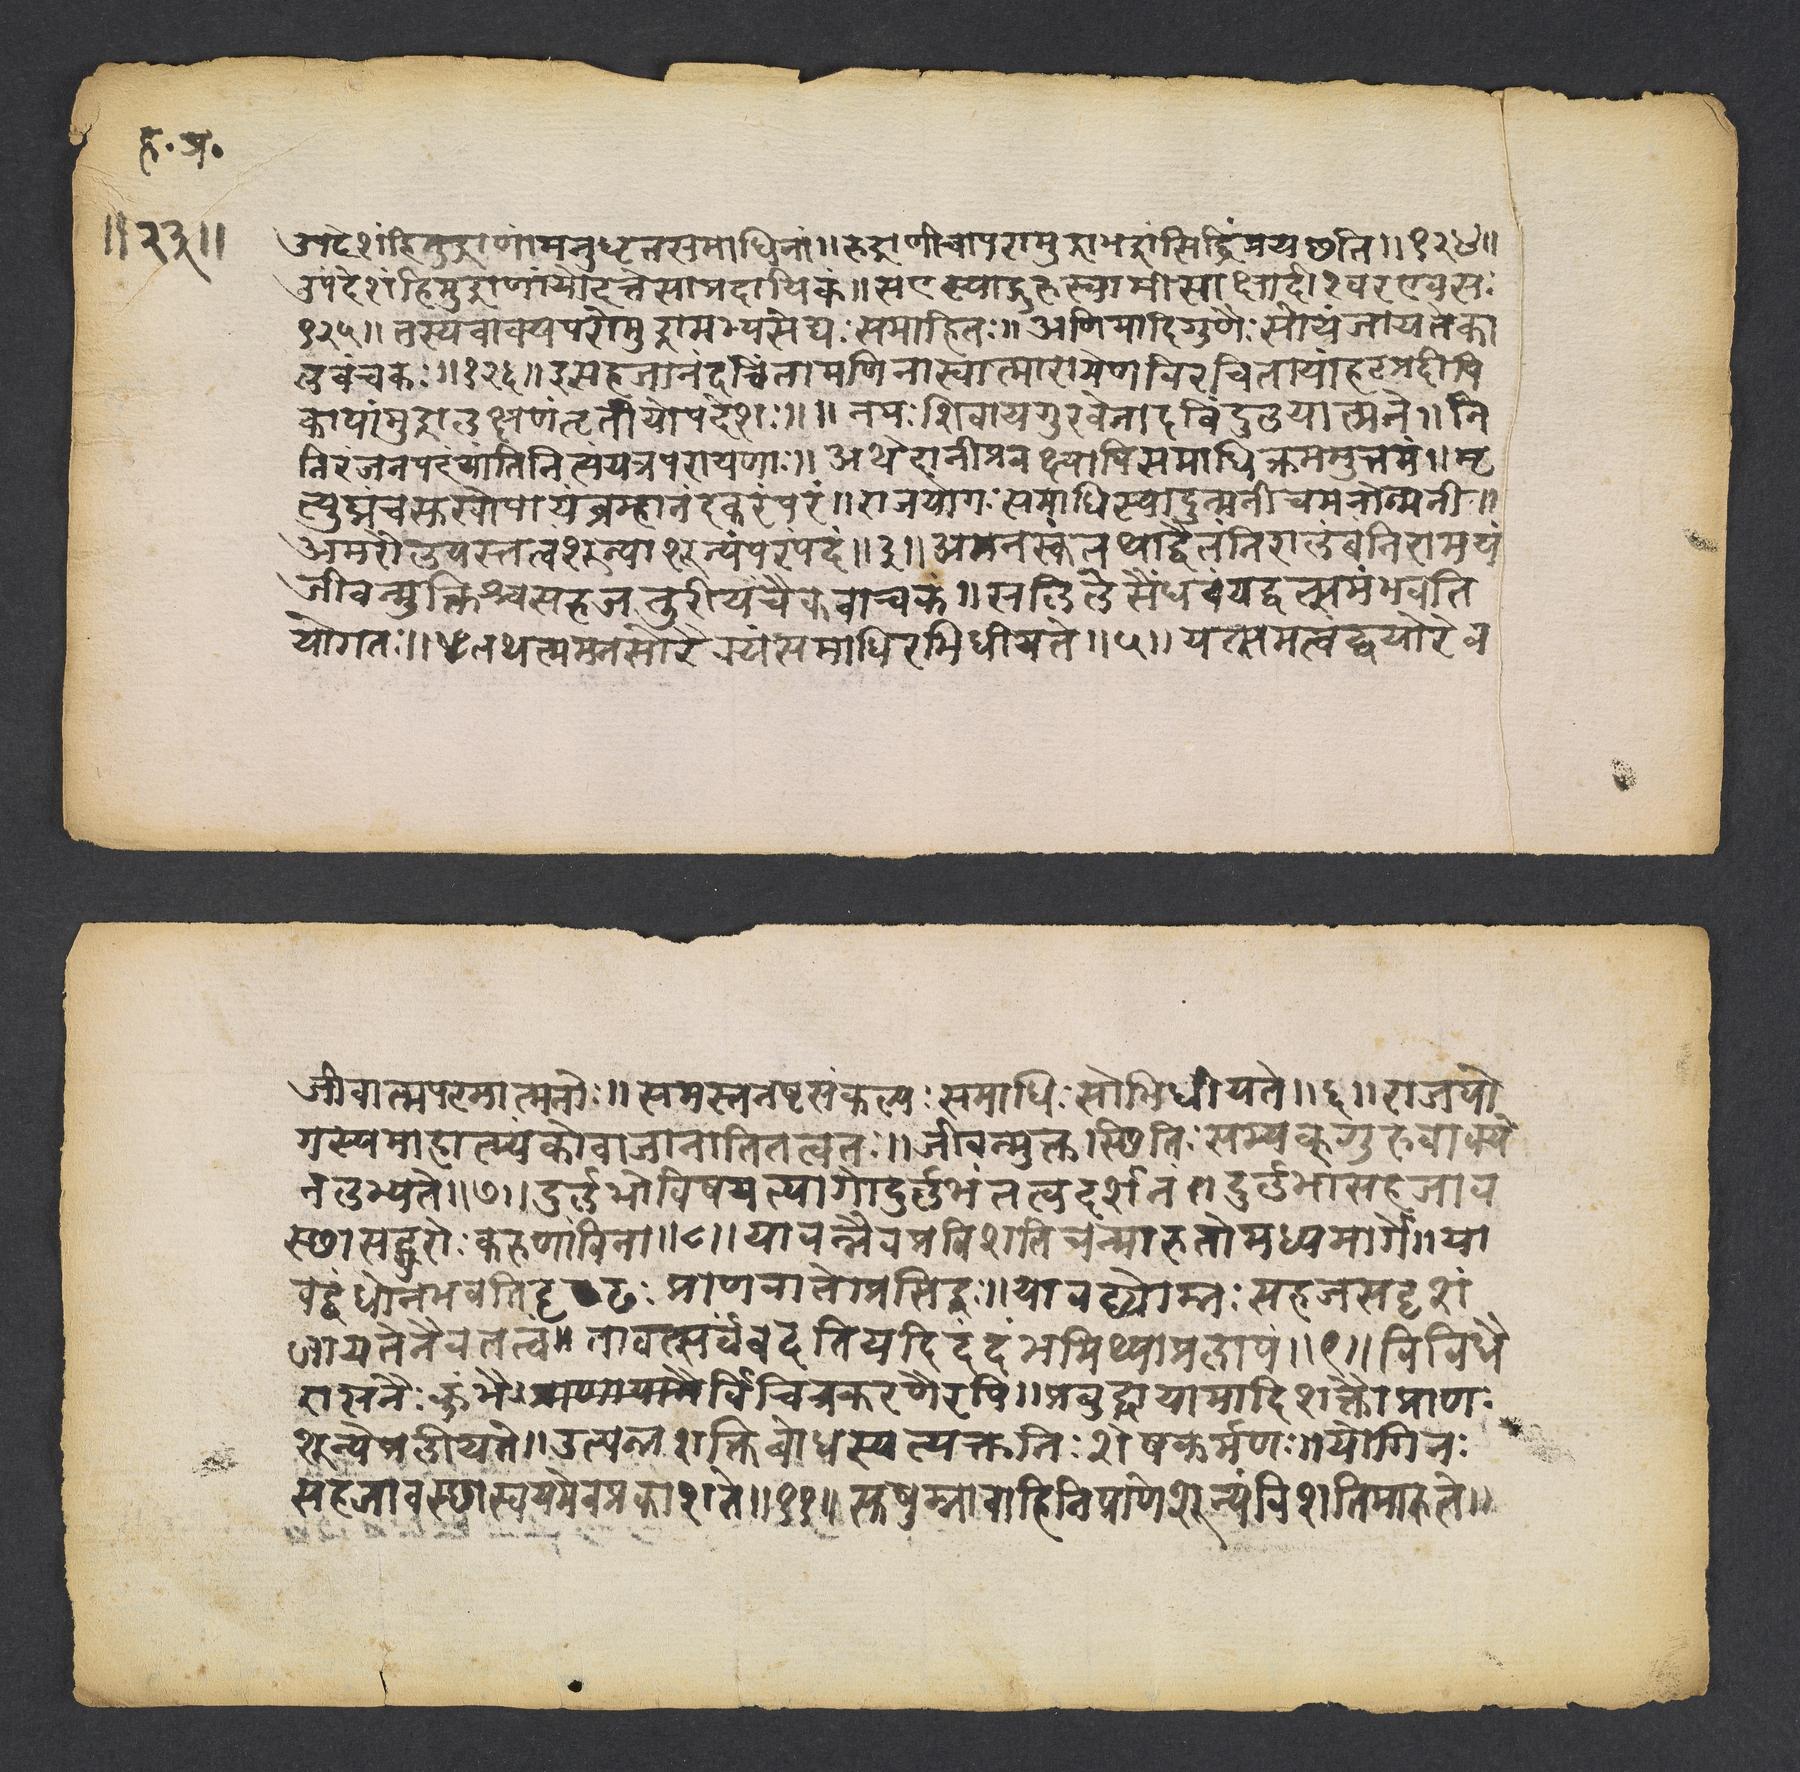 ह. प्र.
॥२३॥
उपदेशंहिमुद्राणांमनुधृतसमाधिनां॥रुद्राणीचापरामुद्राभद्रांसिद्धिंप्रयछति॥१२४॥
उपदेशंहिमुद्राणांयोदत्तेसांप्रदायिकं॥सएवस्याद्गुरुस्वामीसाक्षादीश्वरएवसः
१२५॥तस्यवाक्यपरोमुद्रामभ्यसेद्यःसमाहितः॥अणिमादिगुणैःसोयंजायतेका
लवंचकः॥१२६॥इसहजानंदचिंतामणिनास्वात्मारामेणविरचितायांहठप्रदीपि
कायांमुद्रालक्षणंतृतीयोपदेशः॥॥नमःशिवायगुरवेनादबिंदुलयात्मने॥नि
निरंजनपदयांतिनित्यंयत्रपरायणाः॥अथेदानींप्रवक्ष्यामिसमाधिक्रममुत्तमं॥मृ
त्युघ्नंचसुखोपायंब्रम्हानंदकरंपरं॥राजयोगःसमाधिस्यादुन्मनीचमनोन्मनी॥
अमरौलयस्तत्वंशून्याशून्यंपरंपदं॥३॥अमनस्कंतथाद्वैतंनिरालंबंनिरामयं
जीवन्मुक्तिश्चसहजतुरीयंचैकवाचकं॥सलिलेसैंधवंयद्वत्समंभवति
योगतः॥४तथत्ममनसोरैक्यंसमाधिरभिधीयते॥५॥यत्समत्वंद्वयोरेव
जीवात्मपरमात्मनोः॥समस्तनष्टसंकल्पःसमाधिःसोभिधीयते॥६॥राजयो
गस्यमाहात्म्यंकोवाजानातितत्वतः॥जीवन्मुक्तास्थितिःसम्यक्गुरुवाक्ये
नलभ्यते॥७॥दुर्लभोविषयत्यागोदुर्लभंतत्वदर्शनं॥दुर्लभासहजाव
स्थासद्गुरोःकरुणांविना॥८॥यावन्नैवप्रविशतिचरन्मारुतोमध्यमार्गे॥या
वद्बंधोनभवतिदृढःप्राणवातोप्रसिद्धः॥यावद्व्योम्नःसहजसदृशं
जायतेनैवतत्वं॥तावत्सर्वंवदतियदिदंदंभमिथ्याप्रलापं॥९॥विविधै
रासनैःकुंभैःर्विचित्रकरणैरपि॥प्रबुद्धायामादिशक्तौप्राणः
शून्येप्रलीयते॥उत्पन्नशक्तिबोधस्यत्यक्तनिःशेषकर्मणः॥योगिनः
सहजावस्थास्वयमेवप्रकाशते॥११॥सुषुम्नावाहिनिप्राणेशून्यंविशतिमारुते॥